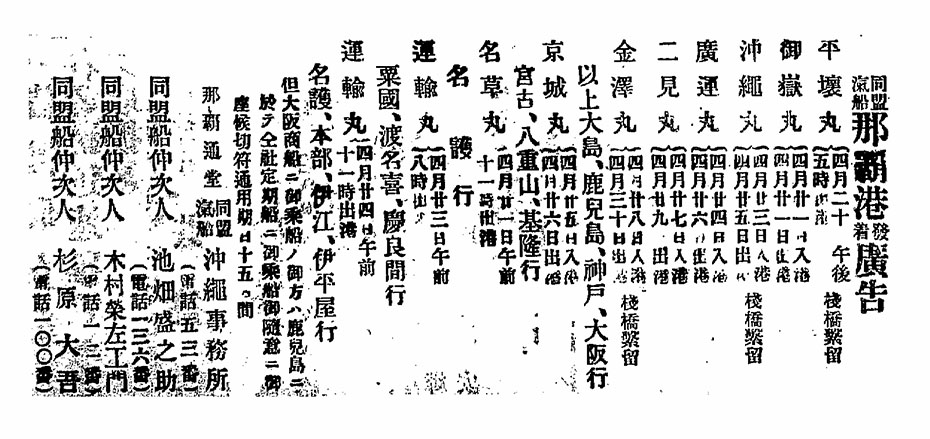 同盟汽船那覇港発着廣告
平壤丸 四月二十日午後五時 棧橋繋留
御嶽丸 四月廿一日入港 四月廿一日出港
沖繩丸 四月廿三日入港 四月廿五日出港 棧橋繋留
廣運丸 四月廿四日入港 四月廿六日出港
二見丸 四月廿七日入港 四月廿九日出港
金澤丸 四月廿八日入港 四月三十日出港 棧橋繋留
以上大島、鹿兒島、神戸、大阪行
京城丸 四月廿五日入港 四月廿六日出港
宮古、八重山、基隆行
名草丸 四月廿一日午前十一時出港
名護行
運輸丸 四月廿三日午前八時出
粟國、渡名喜、慶良間行
運輸丸 四月廿四日午前十一時出港
名護、本部、伊江、伊平屋行
但大阪商船ニ御乗船ノ御方ハ鹿兒島ニ
於テ仝社定期船ニ御乗船御隨意ニ御
座候切符通用期日十五日間
那覇通堂
同盟汽船 沖繩事務所
(電話五三番)
同盟船仲次人 池畑盛之助
(電話一三六番)
同盟船仲次人 木村榮左工門
(電話一一二番)
同盟船仲次人 杉原大吾
(電話一〇〇番)